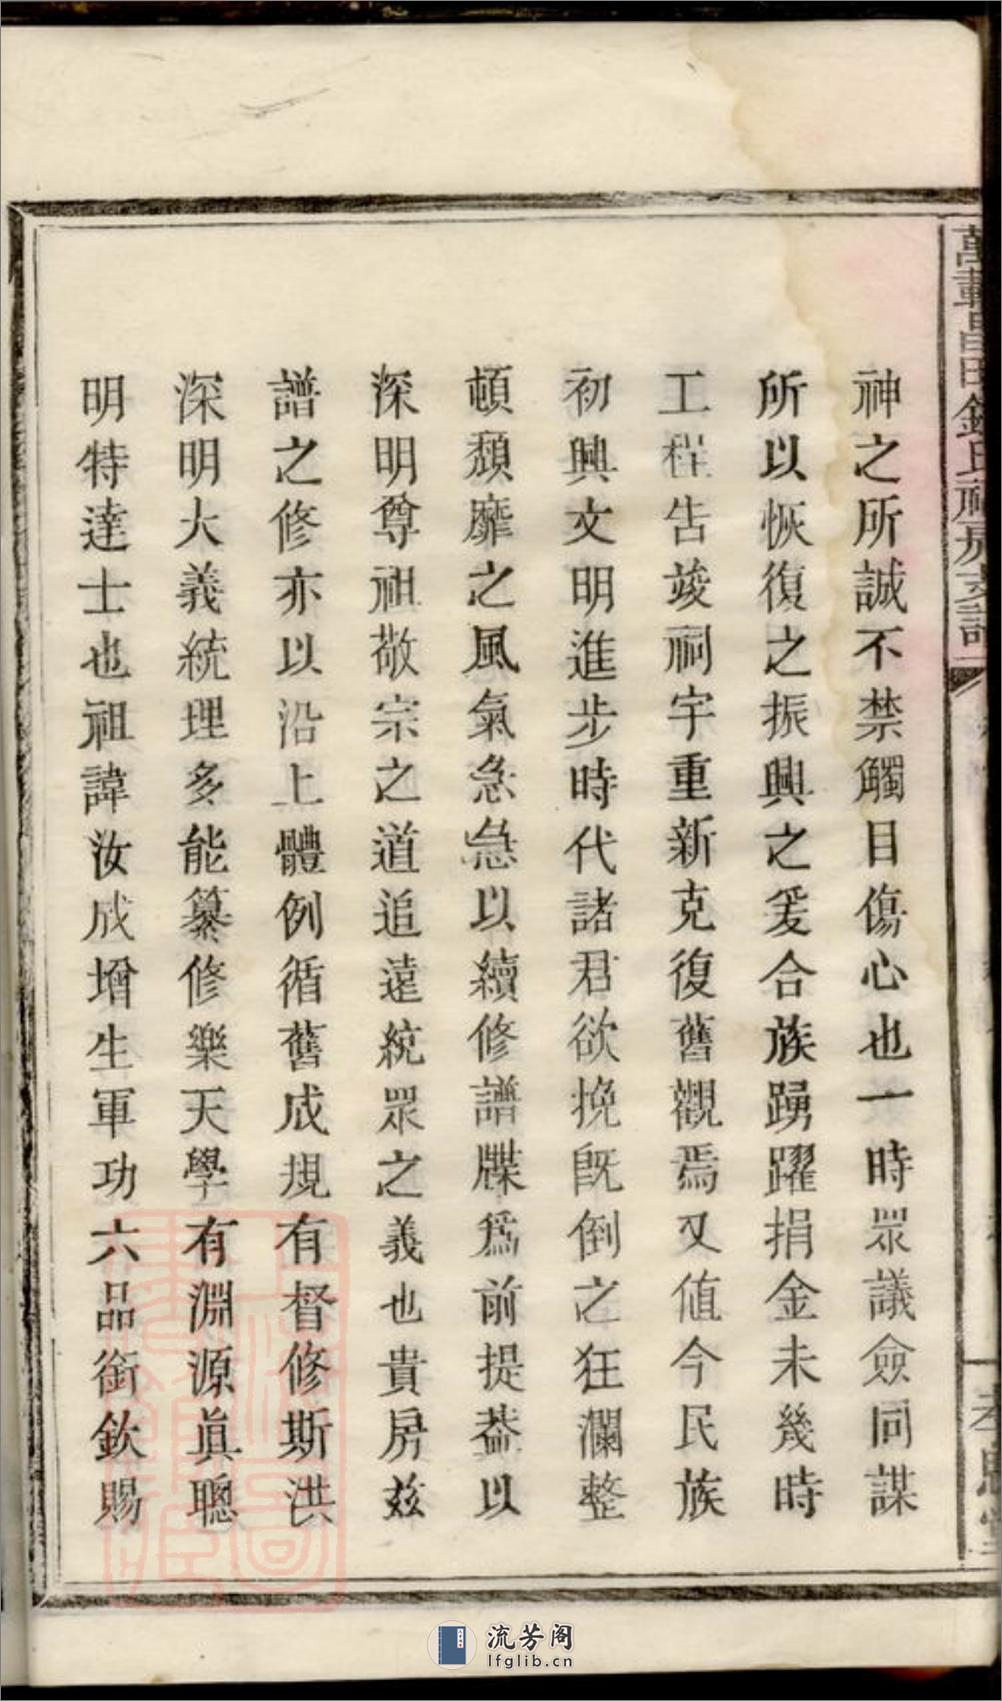 萬載昌田鍾氏祠房支譜
神之所誠不禁觸目傷心也一時眾議僉同謀
所以恢復之振興之爰合族踴躍捐金未幾時
工程告竣祠宇重新克復舊觀焉又值今民族
初興文明進步時代諸君欲挽旣倒之狂瀾整
頓頹靡之風氣急急以續修譜牒爲前提葢以
深明尊祖敬宗之道追遠統眾之義也貴房茲
譜之修亦以沿上體例循舊成規有督修斯洪
深明大義統理多能纂修樂天學有淵源眞聰
明特達士也祖諱汝成增生軍功六品銜欽賜
流芳阁
lfglib.cn